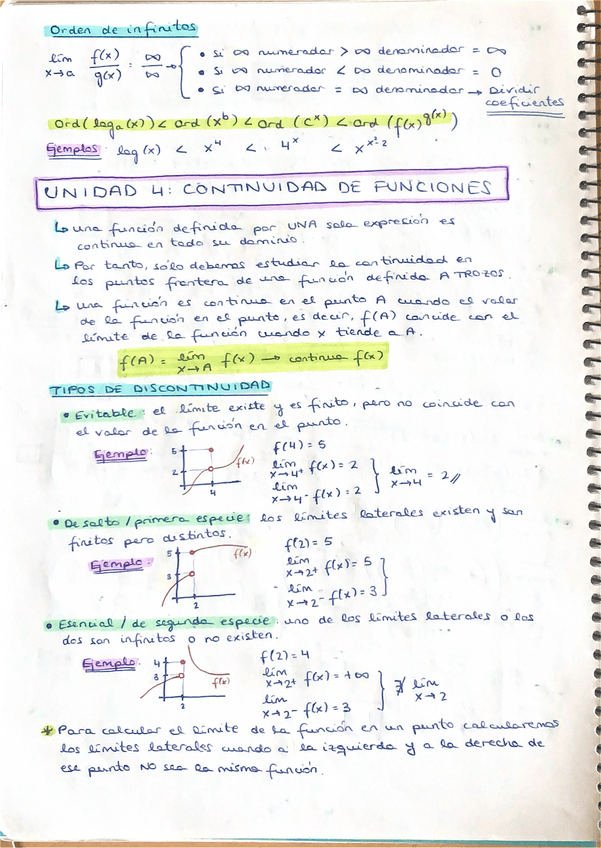 Orden de infinitos
lím x→a f(x)/g(x) = ∞/∞ →
• Si ∞ numerador > ∞ denominador = ∞
• Si ∞ numerador < ∞ denominador = 0
• Si ∞ numerador = ∞ denominador → Dividir
coeficientes
Ord(logₐ(x)) < Ord (xᵇ) < Ord (Cˣ) < Ord (f(x)^g(x))
Ejemplos: log(x) < x⁴ < 4ˣ < x^x²-2
UNIDAD 4: CONTINUIDAD DE FUNCIONES
↳ Una función definida por UNA sola expresión es
continua en todo su dominio.
↳ Por tanto, sólo debemos estudiar la continuidad en
los puntos frontera de una función definida A TROZOS.
↳ Una función es continua en el punto A cuando el valor
de la función en el punto, es decir, f(A) coincide con el
límite de la función cuando x tiende a A.
f(A) = lím x→A f(x) → continua f(x)
TIPOS DE DISCONTINUIDAD
• Evitable: el límite existe y es finito, pero no coincide con
el valor de la función en el punto.
Ejemplo: 5 2 4 f(x)
f(4) = 5
lím x→4⁺ f(x) = 2
lím x→4⁻ f(x) = 2
lím x→4 = 2//
• De salto / primera especie: los límites laterales existen y son
finitos pero distintos.
Ejemplo: 5 3 2 f(x)
f(2) = 5
lím x→2⁺ f(x) = 5
lím x→2⁻ f(x) = 3
• Esencial / de segunda especie: uno de los límites laterales o los
dos son infinitos o no existen.
Ejemplo: 4 3 2 f(x)
f(2) = 4
lím x→2⁺ f(x) = +∞
lím x→2⁻ f(x) = 3
∄ lím x→2
* Para calcular el límite de la función en un punto calcularemos
los límites laterales cuando a la izquierda y a la derecha de
ese punto NO sea la misma función.